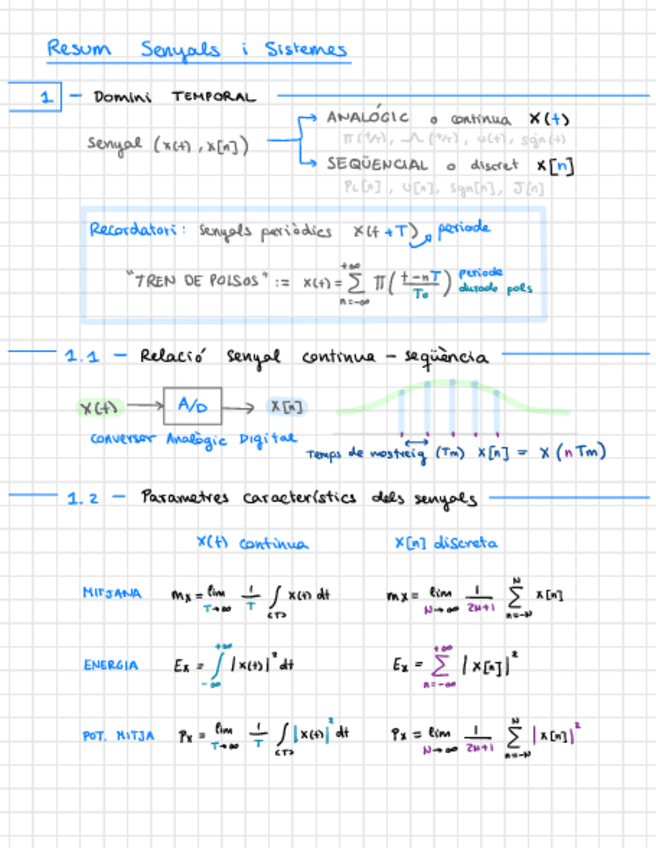 Resum Senyals i Sistemes
1 - Domini TEMPORAL
senyal (x(t), x[n])
ANALÓGIC o continua X(t)
Π(t/τ), Λ(t/τ), u(t), sgn(t)
SEQÜENCIAL o discret X[n]
PL[n], U[n], sgn[n], J[n]
Recordatori: senyals periòdics X(t+T) periode
"TREN DE POLSOS" := x(t) = +∞ ∑ n=-∞ Π((t-nT)/To) periode durade pols
1.1 - Relació senyal continua - seqüència
X(t) → A/D → X[n]
conversor Analògic Digital
Temps de mostreig (Tm) X[n] = X(nTm)
1.2 - Parametres característics dels senyals
X(t) continua X[n] discreta
MITJANA mx = lim T→∞ 1/T ∫<T> x(t) dt mx = lim N→∞ 1/2N+1 N ∑ n=-N x[n]
ENERGIA Ex = +∞ ∫ -∞ |x(t)|² dt Ex = +∞ ∑ n=-∞ |x[n]|²
POT. MITJA Px = lim T→∞ 1/T ∫<T> |x(t)|² dt Px = lim N→∞ 1/2N+1 N ∑ n=-N |x[n]|²